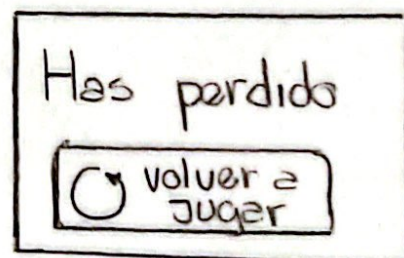 Has perdido
volver a
Jugar